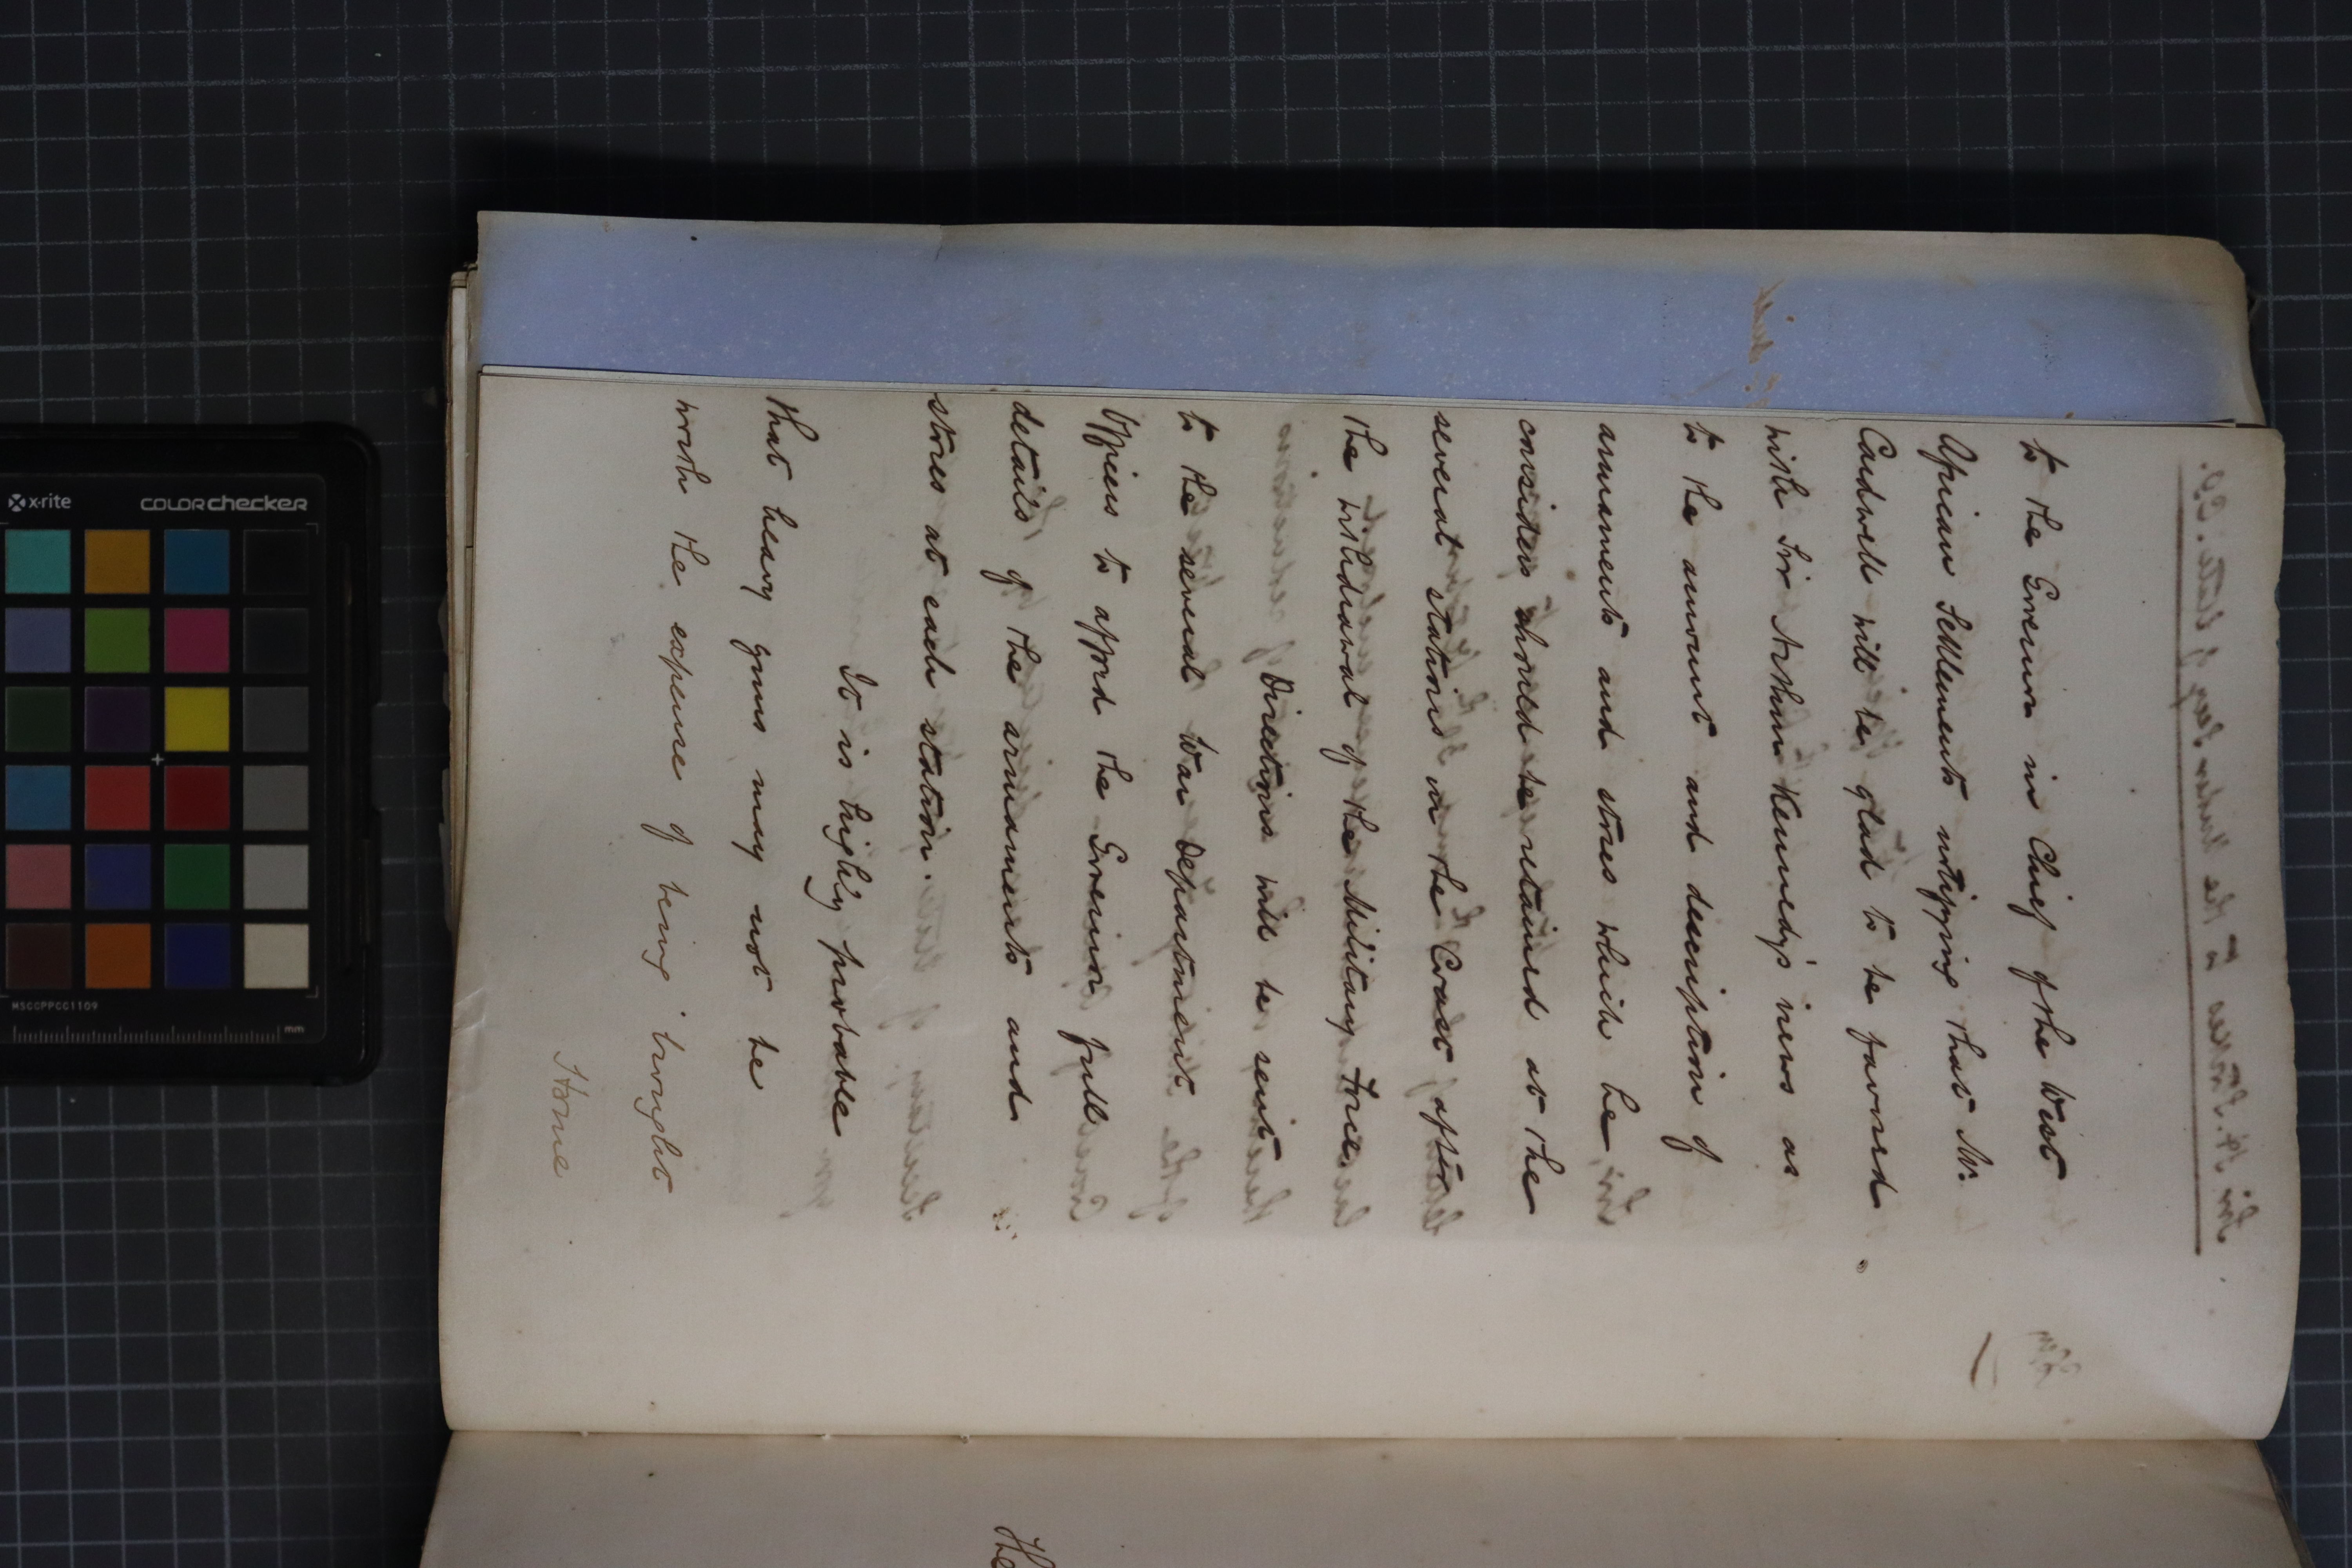 to the Governor in Chief of the West
African Settlements notifying that Mr.
Cardwell will be glad to be favored
with Sir Arthur Kennedy's views as
to the amount and description of
armaments and stores which he
considers should be retained at the
several stations on the Coast after
the withdrawal of the Military Force.
Directions will be sent
to the several War Department
Officers to afford the Governor full
details of the armaments and
stores at each station.
It is highly probable
that heavy guns may not be
worth the expense of being brought
Home
x·rite
COLORchecker
MSCCPPCC1109
mm